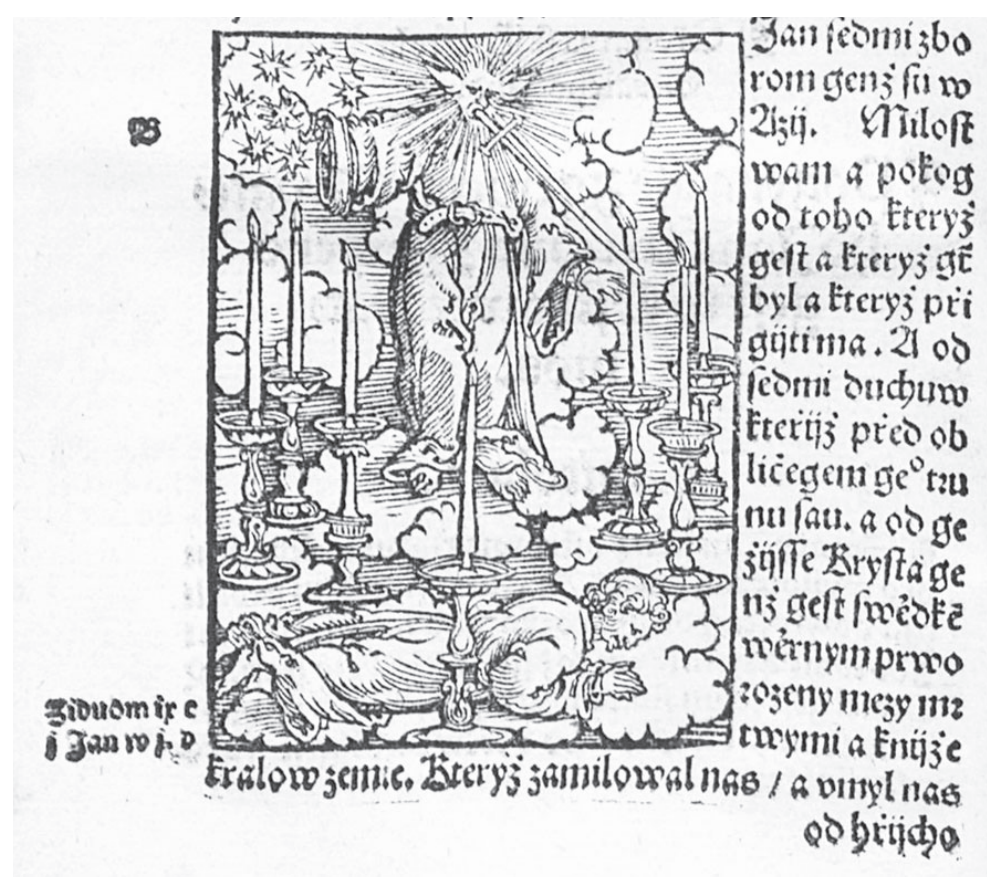 B
Jan sedmi zbo
rom genž sú w
Azij. Milost
wam a pokog
od toho kteryž
gest a kteryž gt̄
byl a kteryž při
gijti ma. A od
sedmi duchuw
kteřijž před ob
ličegem geº tru
nu sau. a od ge
žijsse Krysta ge
nž gest swědkē
wěrnym prwo
rozeny mezy mr
twymi a knijže
Židuom ix c
j Jan w j. d
kralow zemie. Kteryž zamilowal nas / a vmyl nas
od hřijcho